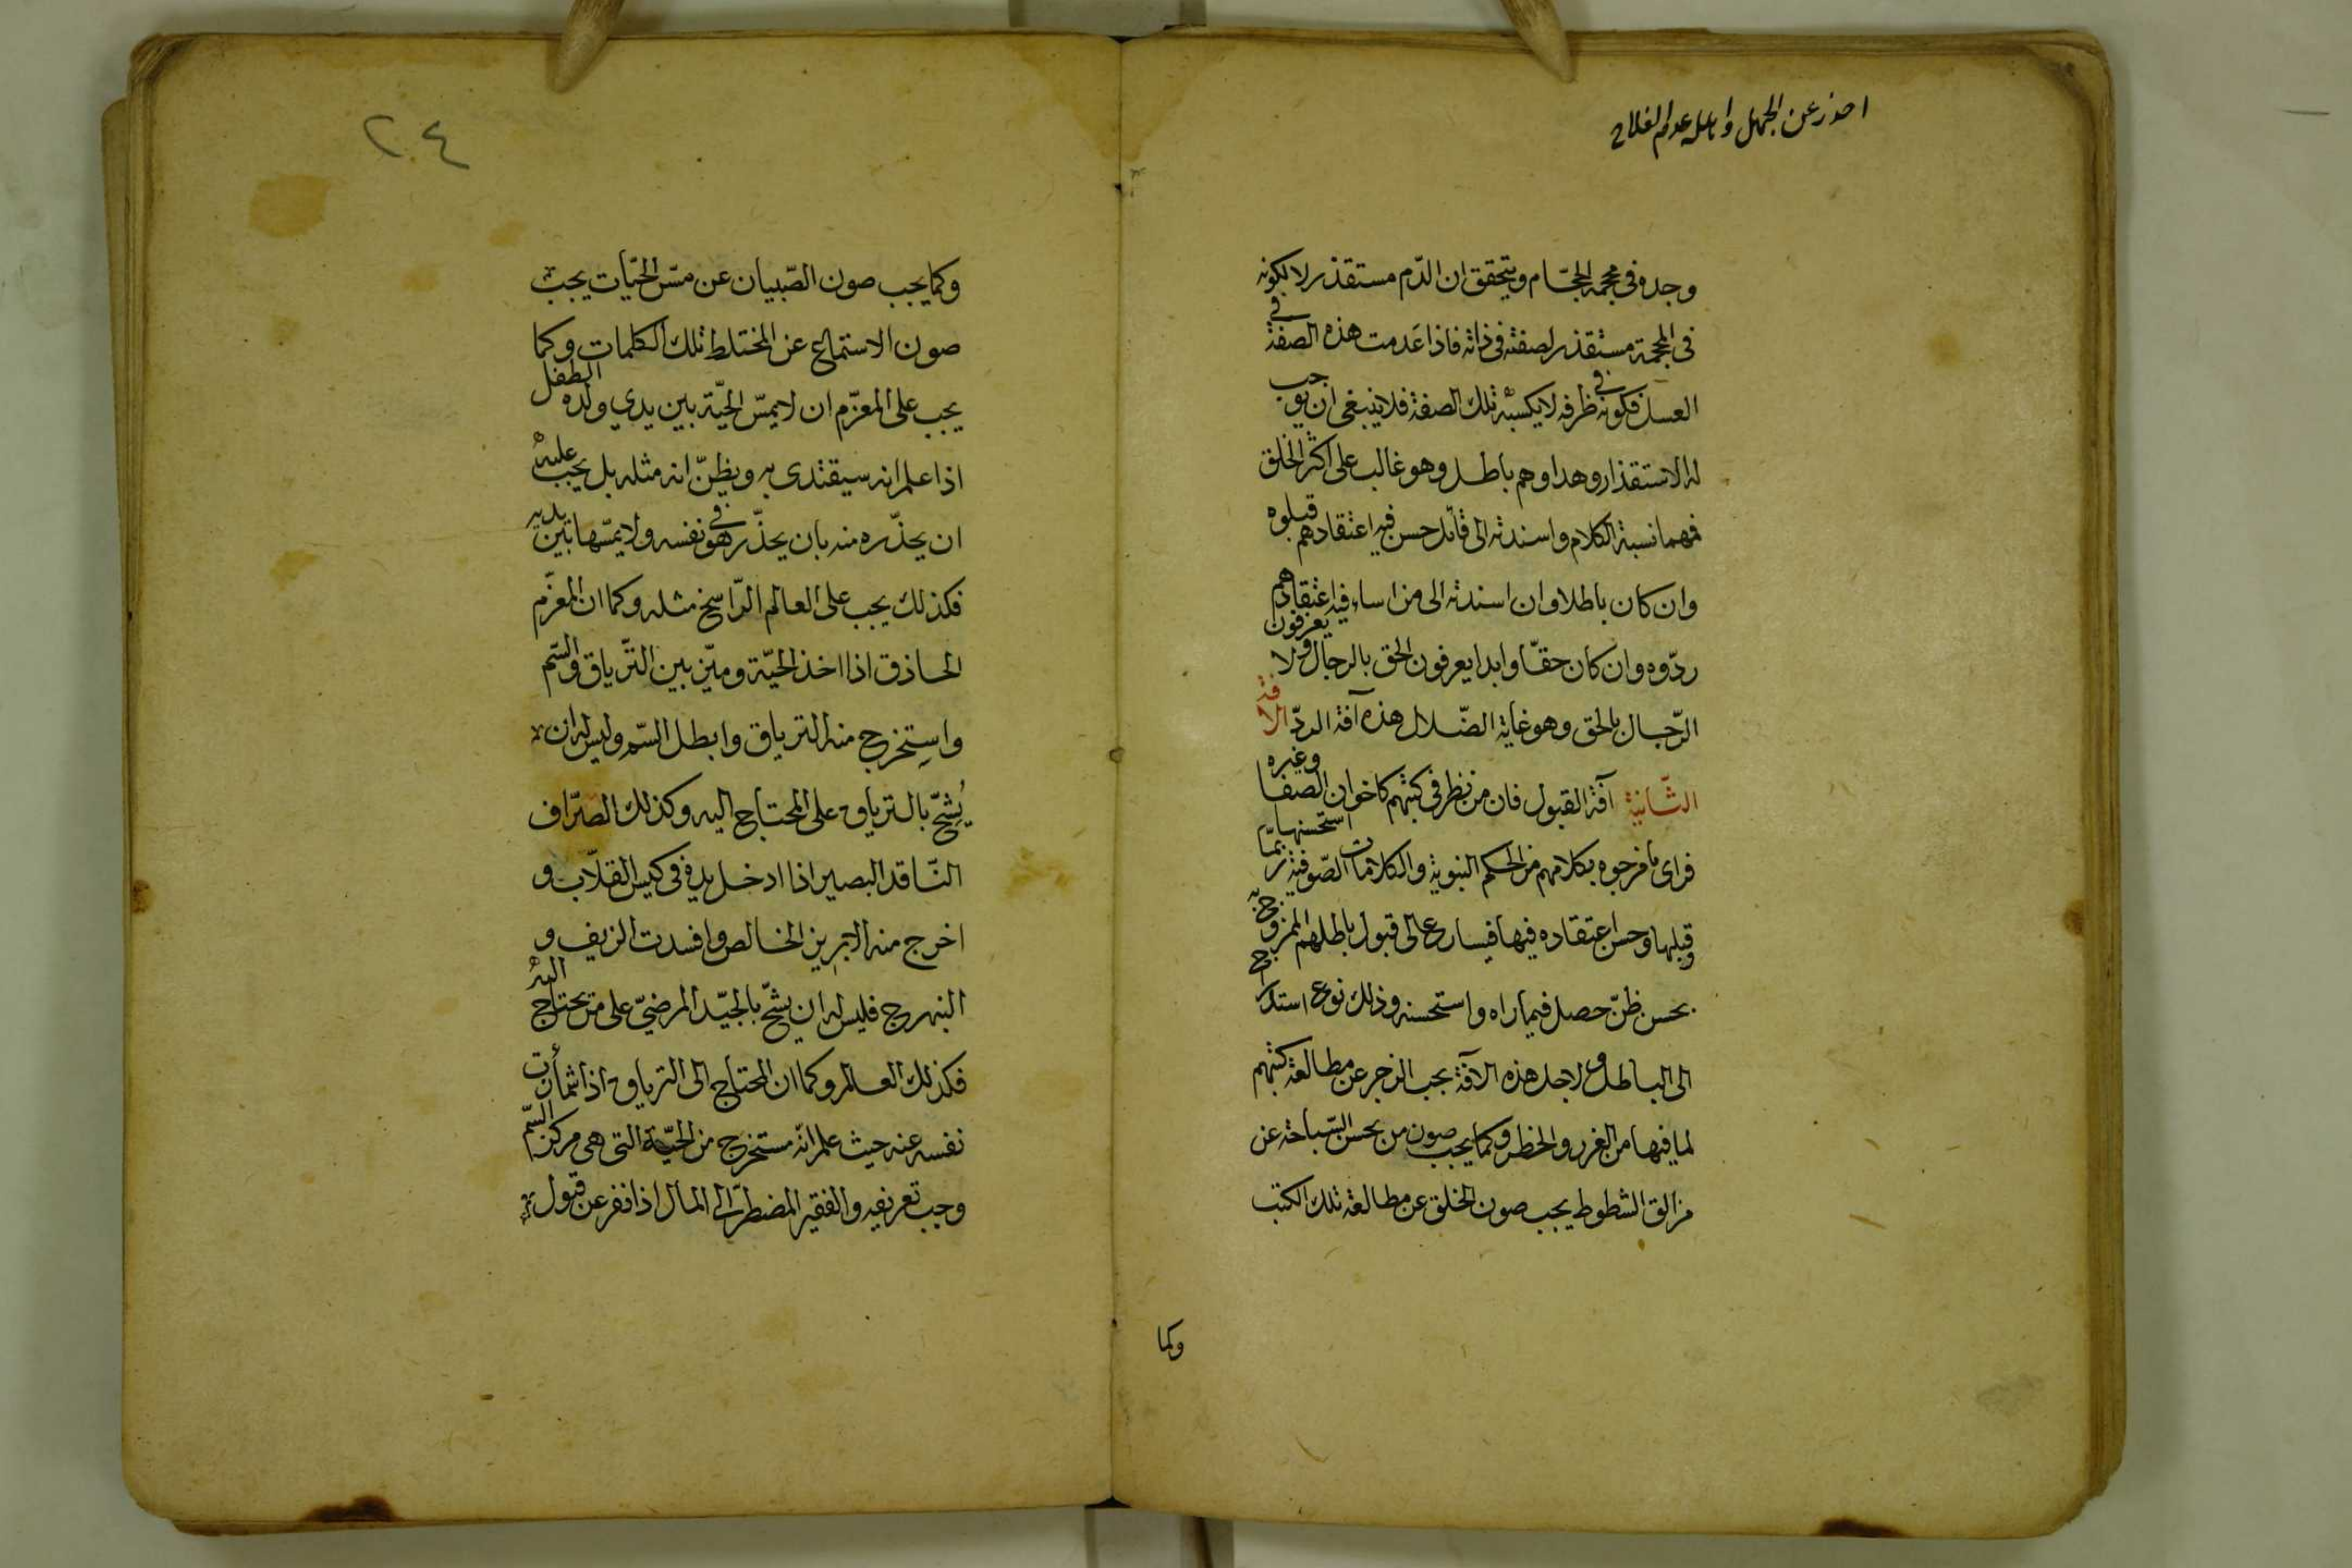 احذر عن الجهل واهله عدوم الفلاح
وجده في محجمة الحجّام ويتحقق ان الدّم مستقذر لا لكونه
في المحجمة مستقذر لصفته في ذاته فاذا عَدمت هذه الصفة في
العسل فكونه في ظرفه لا يكسبه تلك الصفة فلا ينبغي ان يوجب
له الاستقذار وهذا وهم باطل وهو غالب على اكثر الخلق
فمهما نسبة الكلام واسندته الى قائل حسن فيه اعتقادهم قبلوه
وان كان باطلا وان اسندته الى من اساء فيه اعتقادهم
ردّوه وان كان حقّا وابدا يعرفون الحق بالرجال ولا يعرفون
الرّجال بالحق وهو غاية الضّلال هذه آفة الردّ الافة
الثّانية آفة القبول فان من نظر في كتبهم كاخوان الصفا وغيره
فراى ما مزجوه بكلامهم من الحكم النبوية والكلمات الصّوفية ربّما استحسنها
وقبلها وحسن اعتقاده فيها فيسارع الى قبول باطلهم الممزوج به
بحسن ظنّ حصل فيما راه واستحسنه وذلك نوع استدراج
الى الباطل ولاجل هذه الآفة يجب الزجر عن مطالعة كتبهم
لما فيها من الغرر والخطر وكما يجب صون من يحسن السّباحة عن
مزالق الشطوط يجب صون الخلق عن مطالعة تلك الكتب
وكما
٢٤
وكما يجب صون الصّبيان عن مسّ الحيّات يجب
صون الاستماع عن المختلط تلك الكلمات وكما
يجب على المعزّم ان لا يمسّ الحيّة بين يدي ولده الطفل
اذا علم انه سيقتدى به ويظنّ انه مثله بل يجب عليه
ان يحذّره منه بان يحذّر هو في نفسه ولا يمسّها بين يديه
فكذلك يجب على العالم الرّاسخ مثله وكما ان المعزّم
الحاذق اذا اخذ الحيّة وميّز بين التّرياق والسّم
واستِخرج منه الترياق وابطل السّم وليس له ان
يُشِحّ بالترياق على المحتاج اليه وكذلك الصّرّاف
النّاقد البصير اذا ادخل يده في كيس القلّاب و
اخرج منه الابريز الخالص وافسدت الزيف و
النبهرج فليس له ان يشحّ بالجيّد المرضيّ على من يحتاج اليه
فكذلك العالم وكما ان المحتاج الى الترياق اذا شمأزت
نفسه عنه حيث علم انّه مستخرج من الحيّة التى هى مركز السّم
وجب تعريفه والفقير المضطرّ الى المال اذا نفر عن قبول